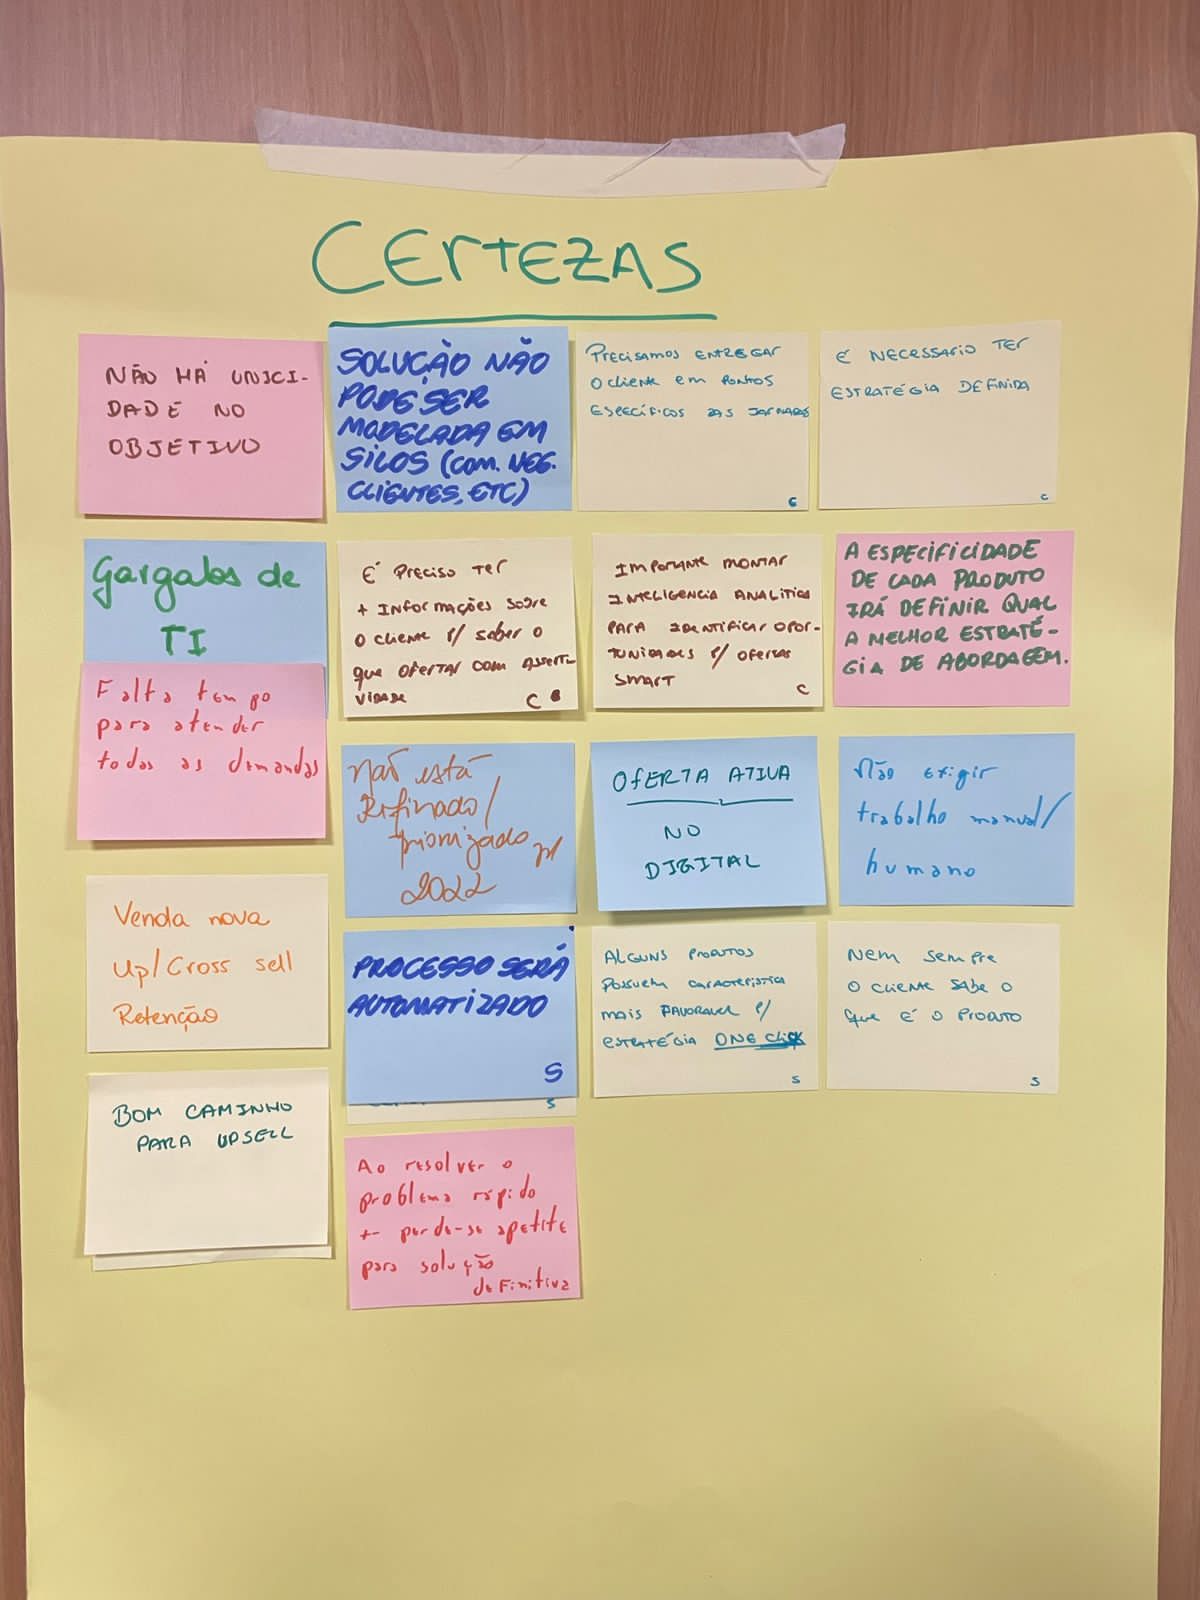 CERTEZAS
NÃO HÁ UNICI-
DADE NO
OBJETIVO
SOLUÇÃO NÃO
PODE SER
MODELADA EM
SILOS (COM. NEG.
CLIENTES, ETC)
PRECISAMOS ENTREGAR
O CLIENTE EM PONTOS
ESPECÍFICOS DAS JORNADAS
C
É NECESSARIO TER
ESTRATÉGIA DEFINIDA
C
Gargalos de
TI
Falta tempo
para atender
todas as demandas
É PRECISO TER
+ INFORMAÇÕES SOBRE
O CLIENTE P/ SABER O
QUE OFERTAR COM ASSERTI
VIDADE
C
IMPORTANTE MONTAR
INTELIGENCIA ANALITICA
PARA IDENTIFICAR OPOR-
TUNIDADES P/ OFERTAS
SMART
C
A ESPECIFICIDADE
DE CADA PRODUTO
IRÁ DEFINIR QUAL
A MELHOR ESTRATÉ-
GIA DE ABORDAGEM.
Não está
Refinado/
priorizado p/
2022
OFERTA ATIVA
NO
DIGITAL
Não exigir
trabalho manual/
humano
Venda nova
Up/Cross sell
Retenção
PROCESSO SERÁ
AUTOMATIZADO
S
S
ALGUNS PRODUTOS
POSSUEM CARACTERISTICA
MAIS FAVORAVEL P/
ESTRATÉGIA ONE CLICK
S
NEM SEMPRE
O CLIENTE SABE O
QUE É O PRODUTO
S
BOM CAMINHO
PARA UPSELL
Ao resolver o
problema rápido
+- perde-se apetite
para solução
definitiva